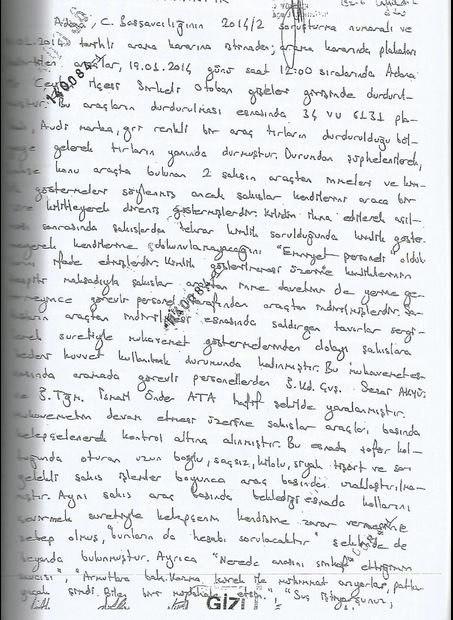 Adana, C. Başsavcılığının 2014/2 soruşturma numaralı ve
.01.2014 tarihli arama kararına istinaden; arama kararında plakaları
araçlar, 19.01.2014 günü saat 12:00 sıralarında Adana
Ceyhan İlçesi Sirkeli Otoban gişeler girişinde durdurul-
muştur. Bu araçların durdurulması esnasında 34 VU 6131 pla-
Audi marka, gri renkli bir araç tırların durdurulduğu böl-
geye gelerek tırların yanında durmuştur. Durumdan şüphelenilerek,
konu araçta bulunan 2 şahsın araçtan inmeleri ve kim-
göstermeleri söylenmiş ancak şahıslar kendilerini araca
kilitleyerek direniş göstermişlerdir. ikna edilerek
sonrasında şahıslardan tekrar kimlik sorulduğunda kimlik göster-
meyerek kendilerine dokunulamayacağını "Emniyet personeli" olduk
ifade etmişlerdir. Kimlik gösterilmemesi üzerine kimliklerinin
maksadıyla şahıslar araçtan inme davetini de yerine ge-
görevli personel tarafından araçtan indirilmişlerdir. Şa-
araçtan indirilmesi esnasında saldırgan tavırlar sergi-
suretiyle mukavemet göstermelerinden dolayı şahıslara
bedeni kuvvet kullanmak durumunda kalınmıştır. Bu mukavemet es-
nasında aramada görevli personellerden J. Kd. Çvş. AKYÜZ
ve J. Tğm. İsmail Önder ATA hafif şekilde yaralanmıştır.
Mukavemetin devam etmesi üzerine şahıslar araçları başında
kelepçelenerek kontrol altına alınmıştır. Bu esnada şoför kol-
tuğunda oturan uzun boylu, saçsız, kilolu, siyah tişört ve
şahıs işlemler boyunca araç başından uzaklaştırılma-
mıştır. Aynı şahıs araç başında beklediği esnada kollarını
suretiyle kelepçenin kendisine zarar vermesine
sebep olmuş, "bunların da hesabı sorulacaktır" şeklinde de
beyanda bulunmuştur. Ayrıca "Nerede
"Armutlara bak. Kazma kürek ile mühimmat arıyorlar,
şimdi.
GİZLİ